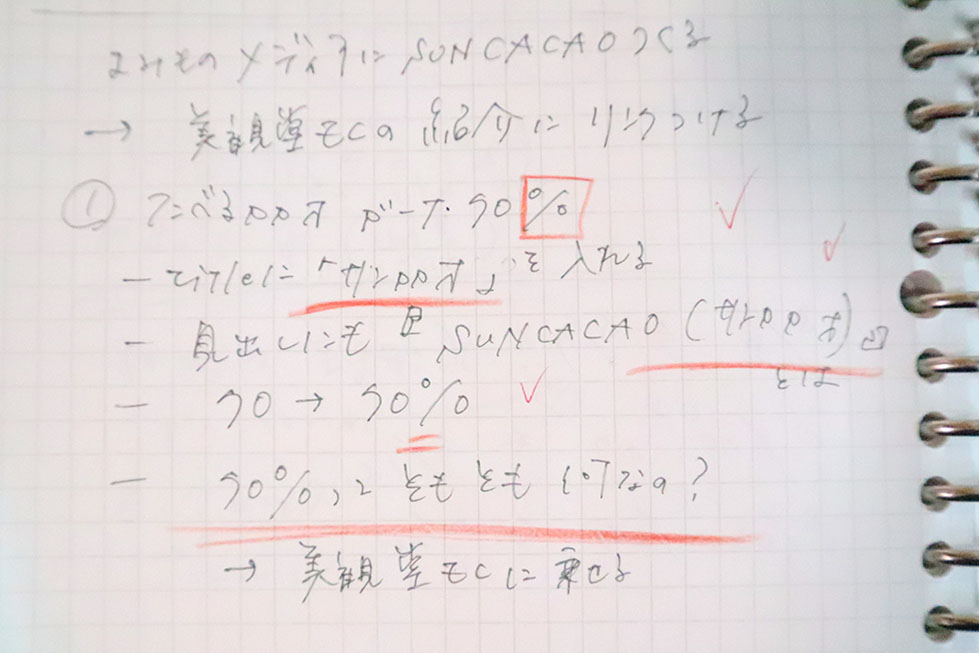 メディアに SUNCACAO つくる
→ 美観堂ECの 紹介に リンクつける
① アンベルカカオ ビーナ・90%
- titleに「サンカカオ」を 入れる
- 見出しにも『SUNCACAO (サンカカオ)』とは
- 90 → 90%
- 90%って そもそも 何なの?
→ 美観堂ECに 乗せる